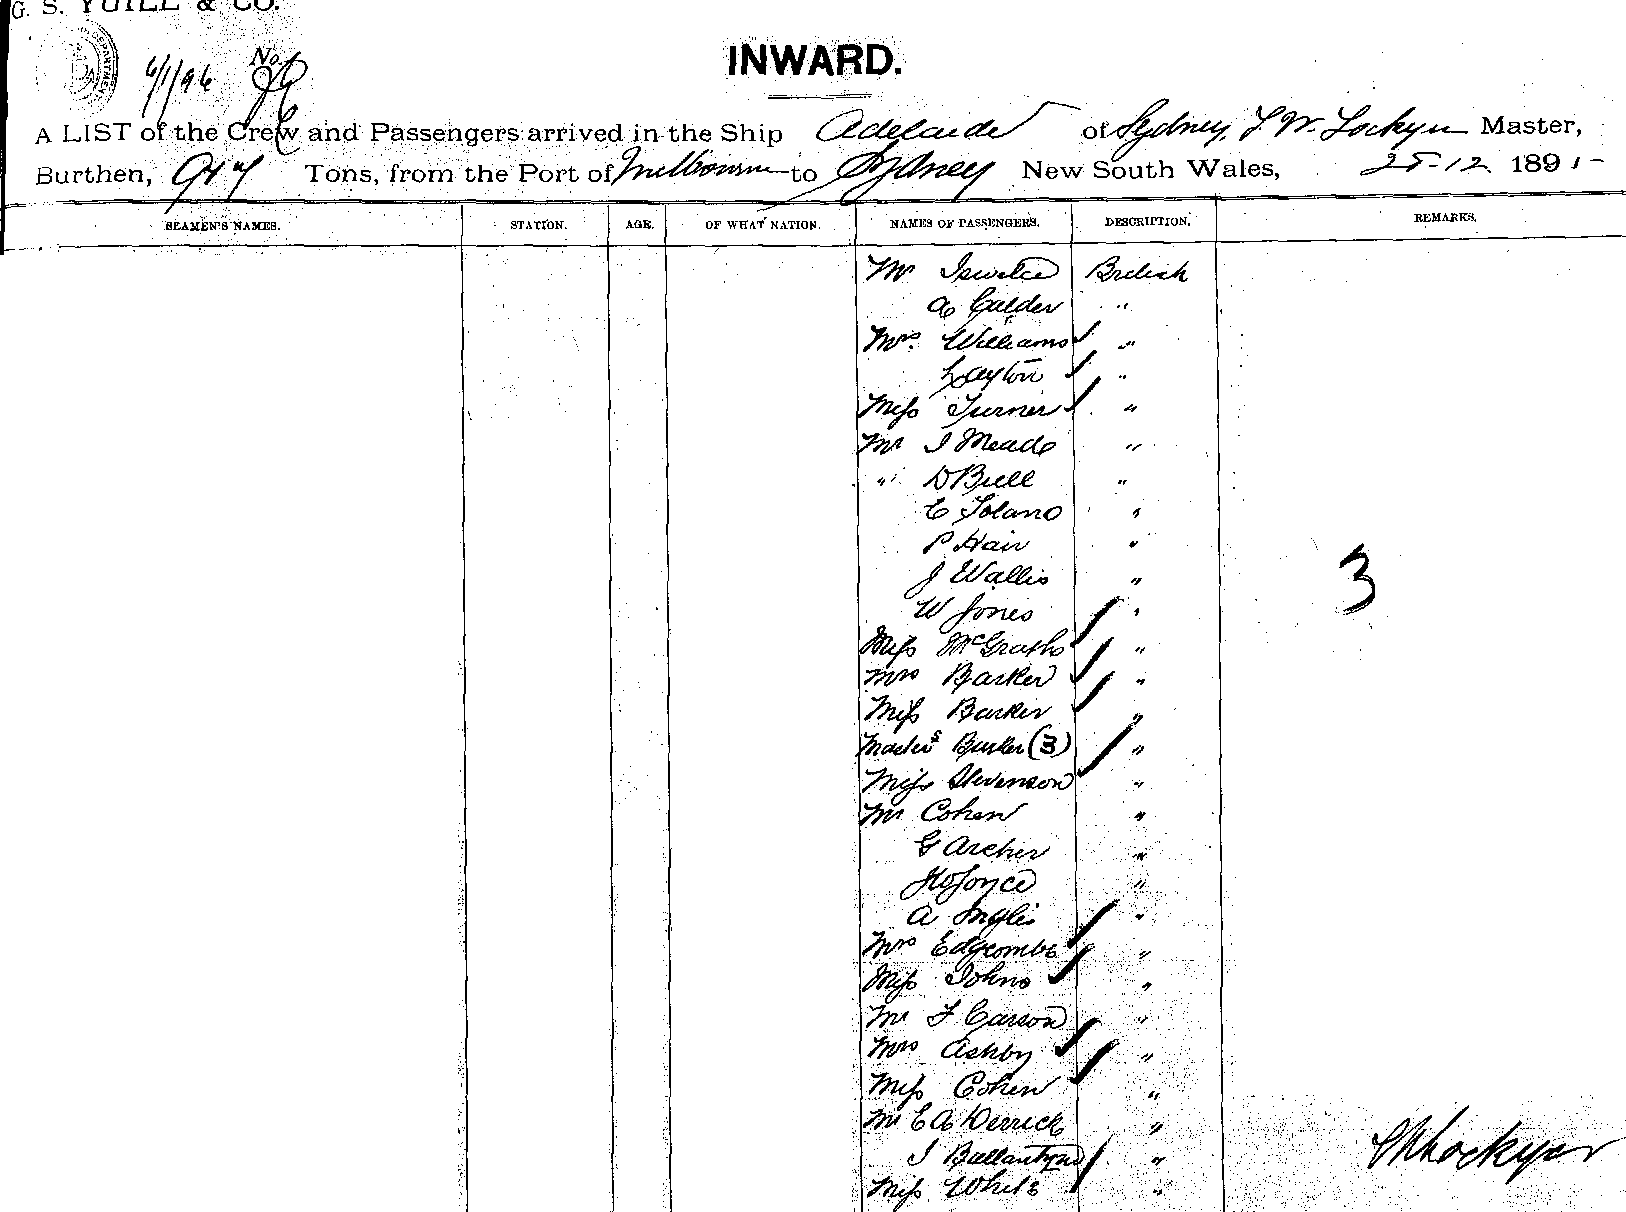 G. S. YUILL & CO.
6/1/96 No
INWARD.
A LIST of the Crew and Passengers arrived in the Ship Adelaide of Sydney, T. W. Lockyer Master,
Burthen, 947 Tons, from the Port of Melbourne to Sydney New South Wales, 25-12 1891-
SEAMEN'S NAMES. STATION. AGE. OF WHAT NATION. NAMES OF PASSENGERS. DESCRIPTION. REMARKS.
Mr British
A Calder "
Mrs. Williams "
Layton "
Miss Turner "
Mr J Meade "
" D Bull "
E Solano "
P Hair "
J Wallis "
3
W Jones "
Miss McGrath "
Mrs Barker "
Miss Barker "
Masters Barker (3) "
Miss Stevenson "
Mr Cohen "
G Archer "
Joyce "
A Inglis "
Mrs Edgcombe "
Miss Johns "
Mr F Carson "
Mrs Ashby "
Miss Cohen "
Mr E A Derrick "
J Ballantyne "
Lockyer
Miss White "